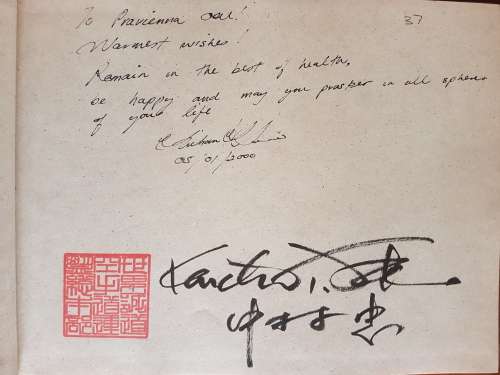 To Pravienna
37
Warmest wishes!
Remain in the best of health,
be happy and may you prosper in all spheres
of your life
05/01/2000
Kancho T.
中村 忠